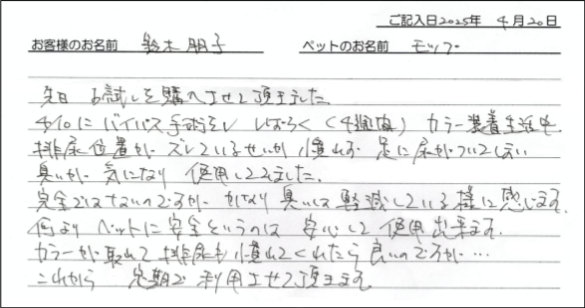 ご記入日2025年 4月20日
お客様のお名前 鈴木朋子 ペットのお名前 モップ
先日 お試しを購入させて頂きました。
4/10にバイパス手術をし しばらく（4週間）カラー装着生活中。
排尿位置が ズレているせいか 慣れず 足に尿がついてしまい
臭いが 気になり 使用してみました。
完全ではないのですが かなり 臭いは 軽減している様に感じます。
何より ペットに安全というのは 安心して 使用出来ます。
カラーが取れて 排尿も 慣れてくれたら 良いのですが…
これから 定期で 利用させて頂きます。